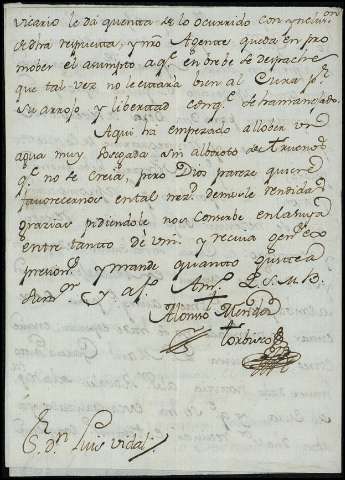 vicario le da quenta de lo ocurrido con ynclusⁿ
de dha respuesta, y mō Agente queda en pro
mober el asumpto a qᵉ en brebe se despache
que tal vez no le estará bien al Cura pʳ
su arrojo y libertad conqᵉ se ha manejado.
Aqui ha empezado a llober un
agua muy sosegada sin alboroto de truenos
qᵉ no se creia, pero Dios pareze quiere
favorecernos en tal nezᵈ demosle rendidas
grazias pidiendole nos conserbe en la suya
entre tanto de Vm. y reciva
y mande quanto
Alonso Mendez
Sʳ. Dⁿ Luis Vidal